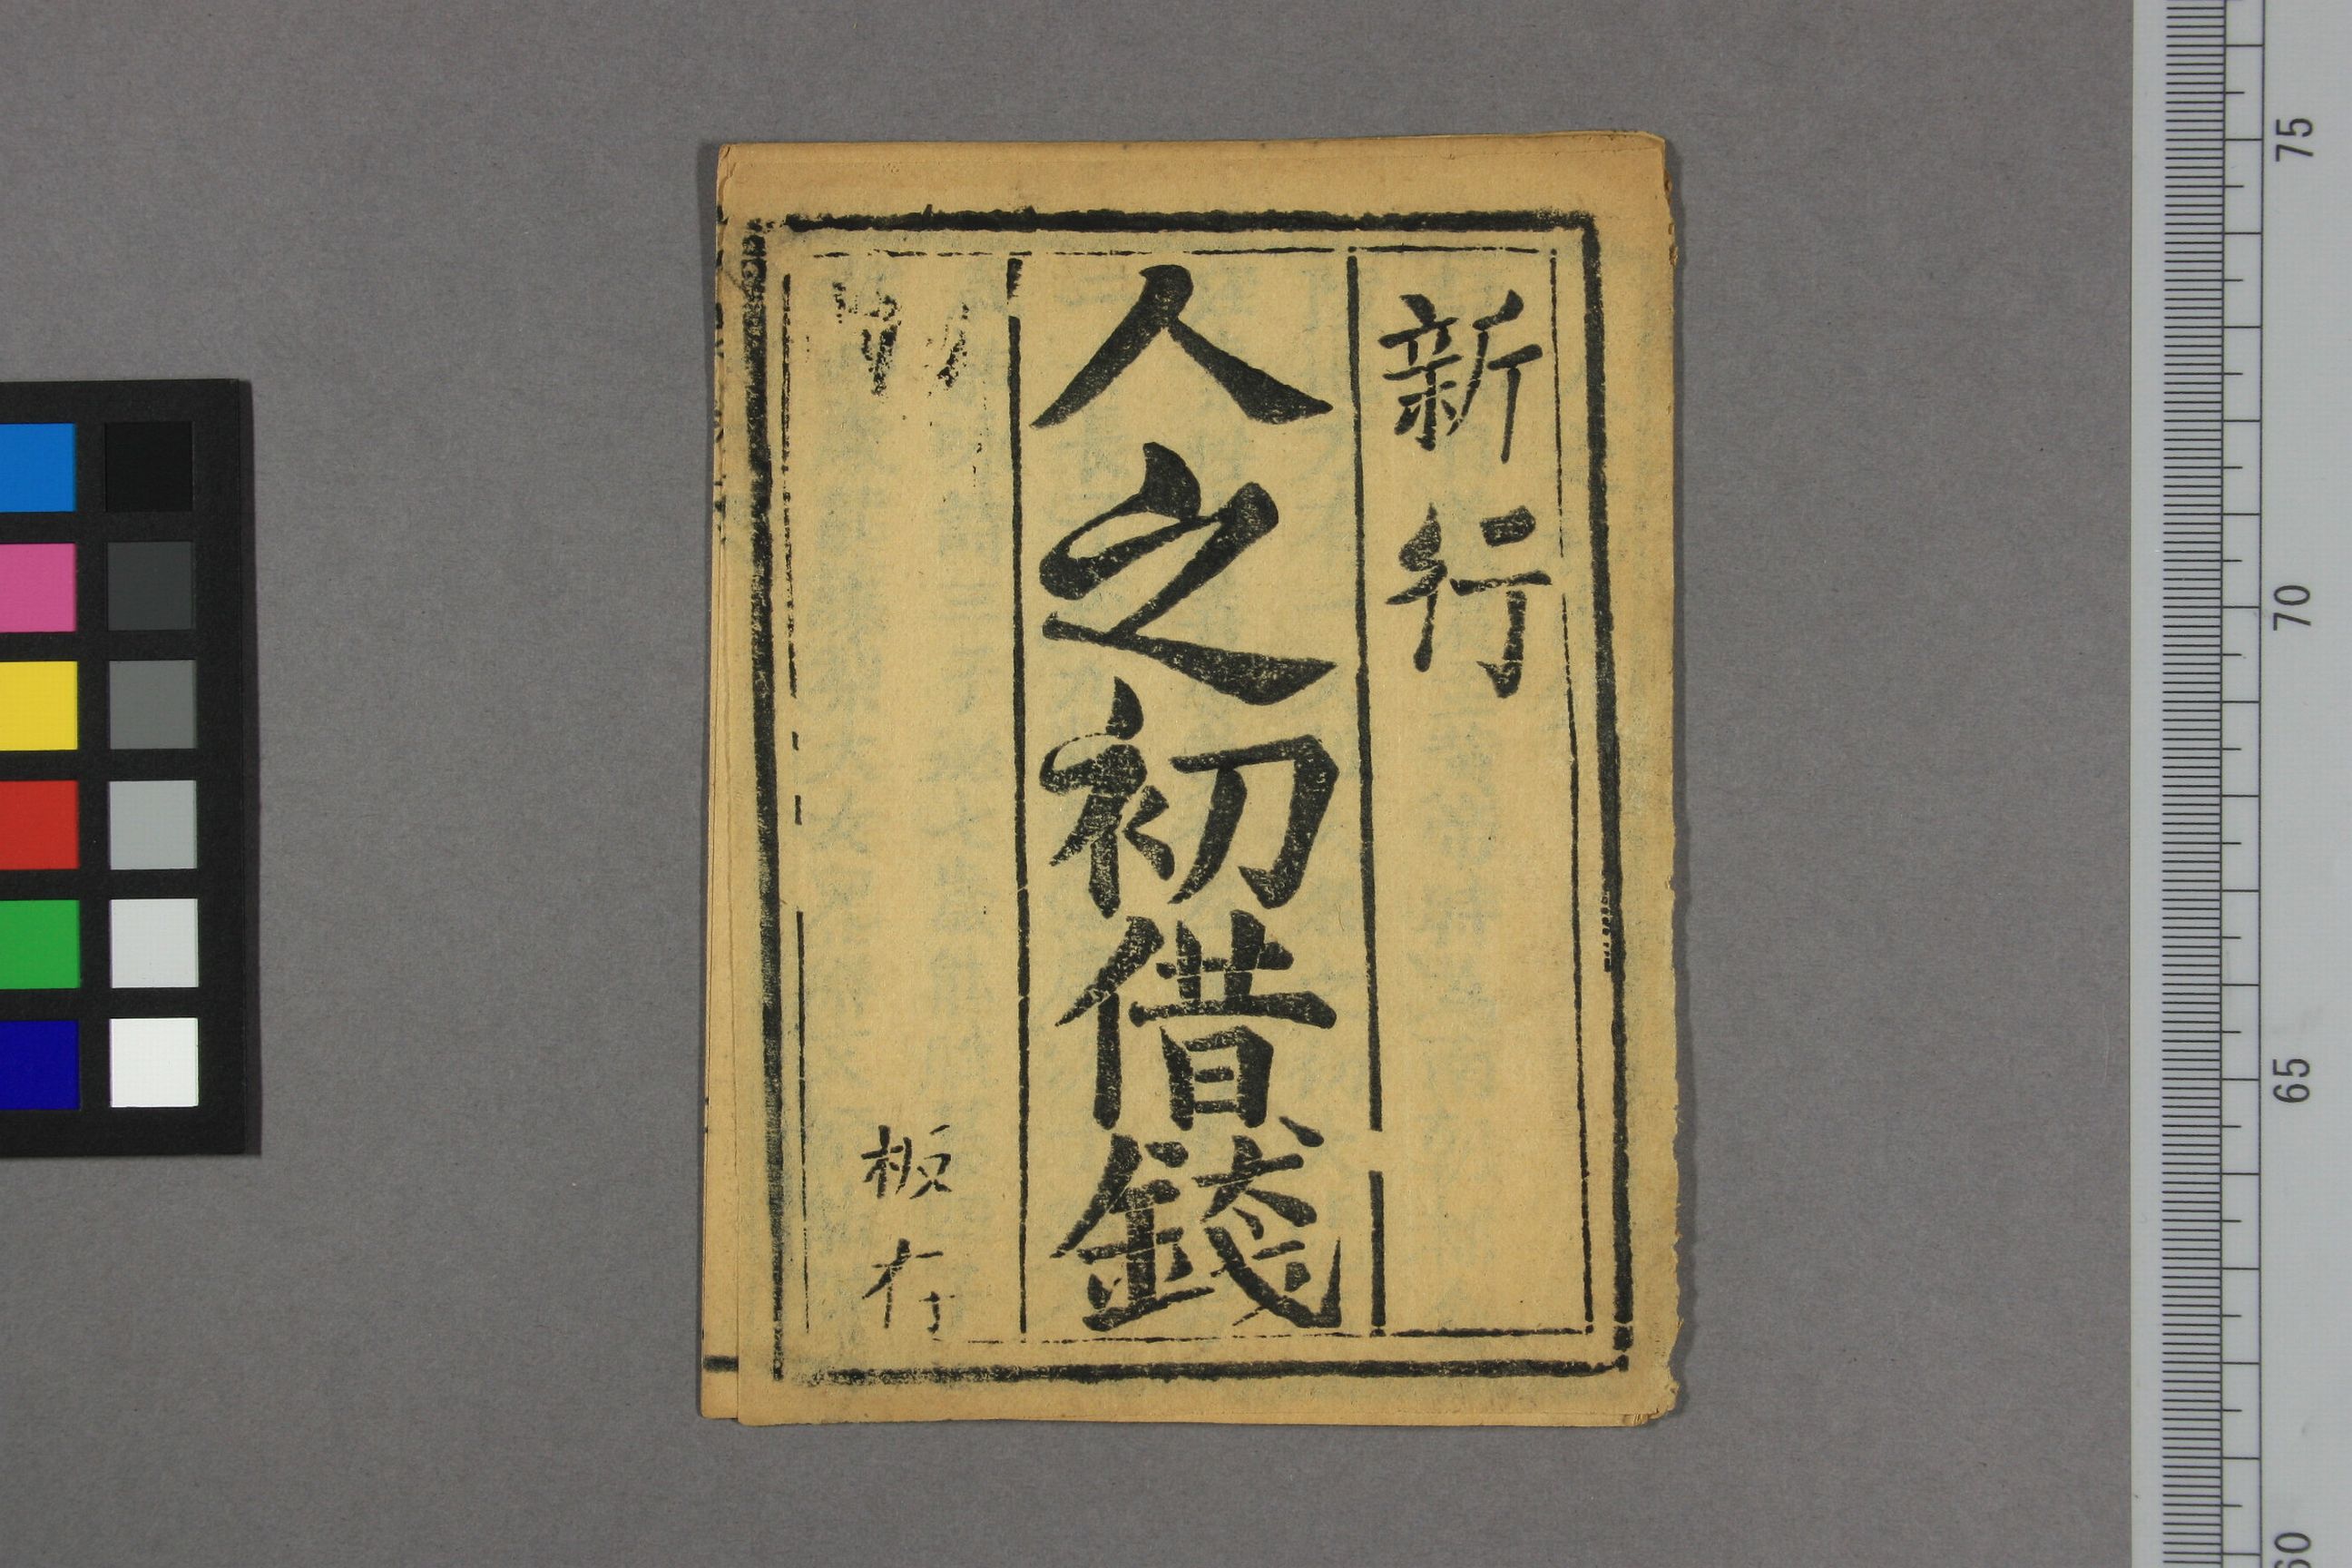 新行
人之初借錢
板存
75
70
65
60